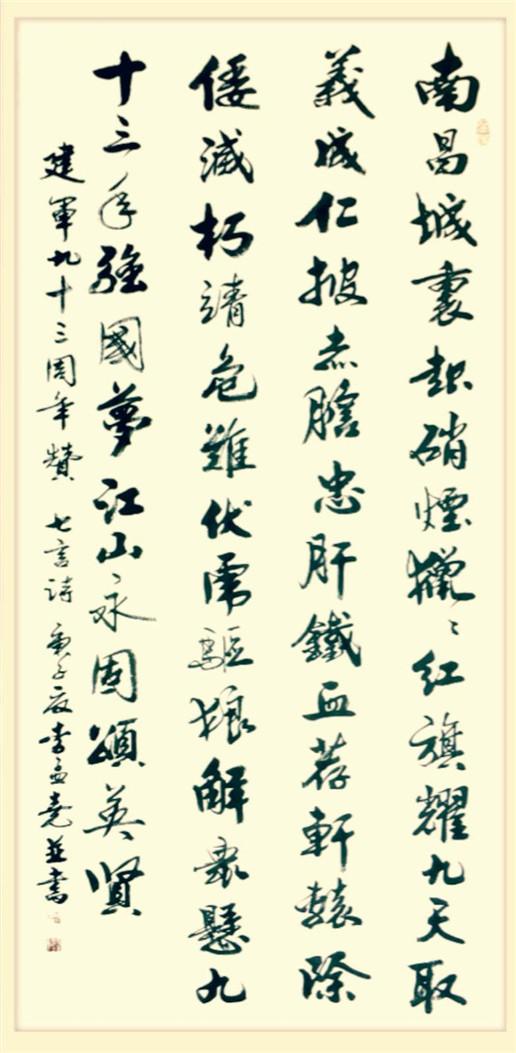 南昌城裏起硝煙獵々紅旗耀九天取
義成仁披赤膽忠肝鐵血荐軒轅除
倭滅朽靖危難伏虎驅狼解衆懸九
十三年強國夢江山永固頌英賢
建軍九十三周年贊 七言詩 庚子夏李孟堯並書